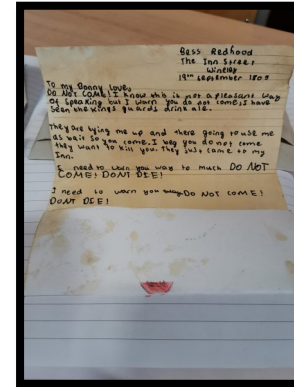 Bess Redhood
The Inn Street
Winelby
19th September 1805
To my Bonny Love,
DO NOT COME! I know this is not a pleasant way
of speaking but I warn you do not come, I have
seen the kings guards drink ale.
They are tying me up and there going to use me
as bait so you come. I beg you do not come
they want to kill you. They just came to my
Inn.
I need to warn you way to much DO NOT
COME! DONT DIE!
I need to warn you way DO NOT COME!
DONT DIE!